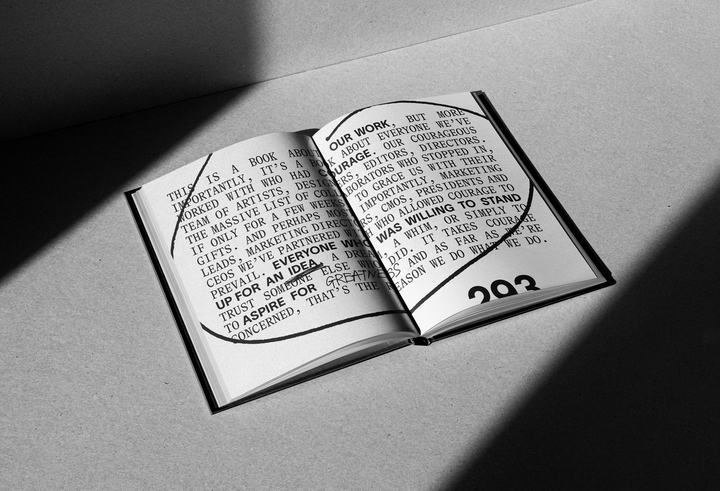 THIS IS A BOOK ABOUT OUR WORK, BUT MORE
IMPORTANTLY, IT'S A BOOK ABOUT EVERYONE WE'VE
WORKED WITH WHO HAD COURAGE. OUR COURAGEOUS
TEAM OF ARTISTS, DESIGNERS, EDITORS, DIRECTORS.
THE MASSIVE LIST OF COLLABORATORS WHO STOPPED IN,
IF ONLY FOR A FEW WEEKS TO GRACE US WITH THEIR
GIFTS. AND PERHAPS MOST IMPORTANTLY, MARKETING
LEADS, MARKETING DIRECTORS, CMOS, PRESIDENTS AND
CEOS WE'VE PARTNERED WITH WHO ALLOWED COURAGE TO
PREVAIL. EVERYONE WHO WAS WILLING TO STAND
UP FOR AN IDEA, A WHIM, OR SIMPLY TO
TRUST SOMEONE ELSE WHO DID. IT TAKES COURAGE
TO ASPIRE FOR GREATNESS AND AS FAR AS WE'RE
CONCERNED, THAT'S THE REASON WE DO WHAT WE DO.
293